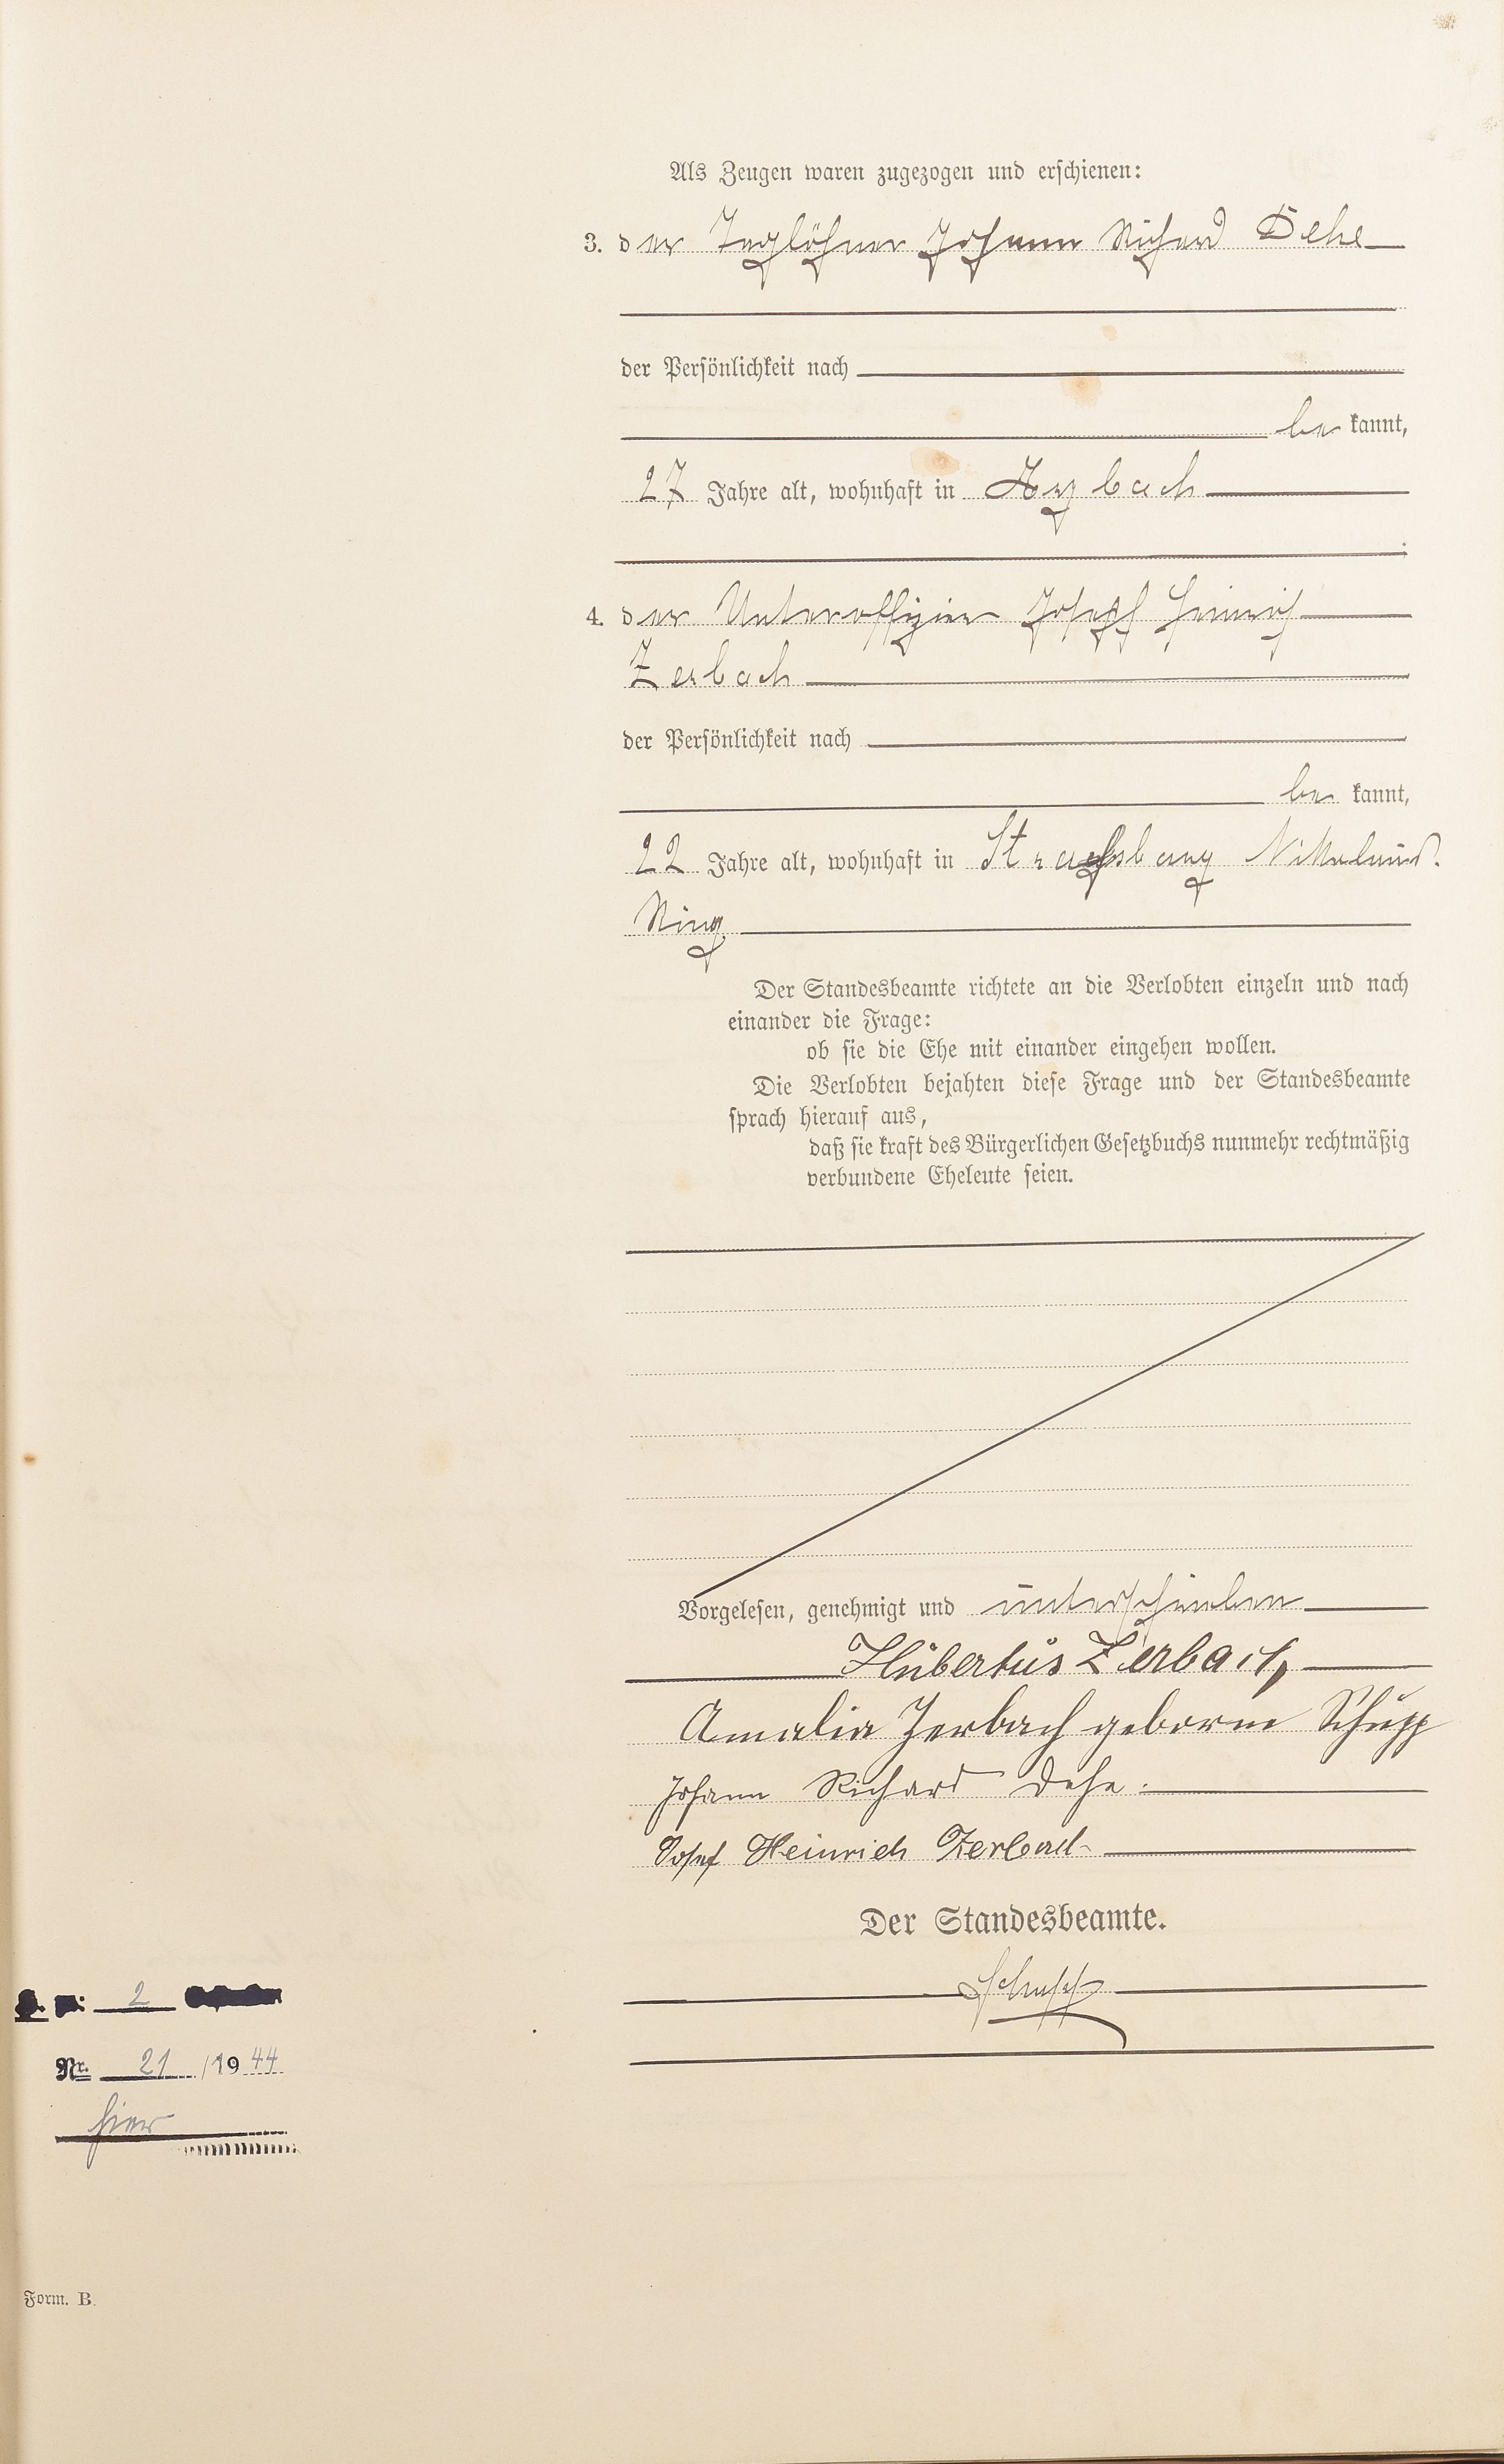 Als Zeugen waren zugezogen und erschienen:
3. der Taglöhner Johann Richard Dehe
der Persönlichkeit nach
be kannt,
27 Jahre alt, wohnhaft in Arzbach
4. der Unteroffizier Joseph Heinrich
Zerbach
der Persönlichkeit nach
be kannt,
22 Jahre alt, wohnhaft in Strassburg
Ring
Der Standesbeamte richtete an die Verlobten einzeln und nach
einander die Frage:
ob sie die Ehe mit einander eingehen wollen.
Die Verlobten bejahten diese Frage und der Standesbeamte
sprach hierauf aus,
daß sie kraft des Bürgerlichen Gesetzbuchs nunmehr rechtmäßig
verbundene Eheleute seien.
Vorgelesen, genehmigt und unterschrieben
Hubertus Zerbach
Amalia Zerbach geborne Schupp
Johann Richard Dehe.
Josef Heinrich Zerbach
Der Standesbeamte.
Schupp
2
Nr. 21 /1944
hier
Form. B.